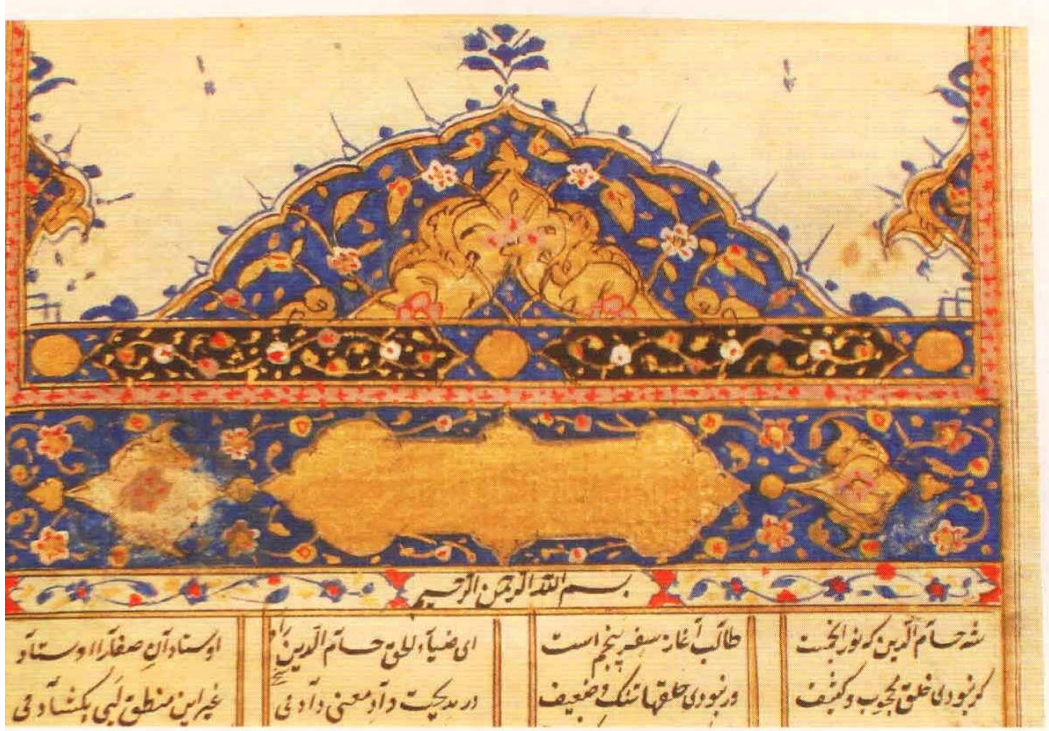 بسم الله الرحمن الرحیم
شه حسام الدین که نور انجمست طالب آغاز سفر پنجم است ای ضیاء الحق حسام الدین راد اوستادان صفا را اوستاد
گر نبودی خلق محجوب و کثیف ور نبودی حلقها تنگ و ضعیف در مدیحت داد معنی دادمی غیر این منطق لبی بگشادمی